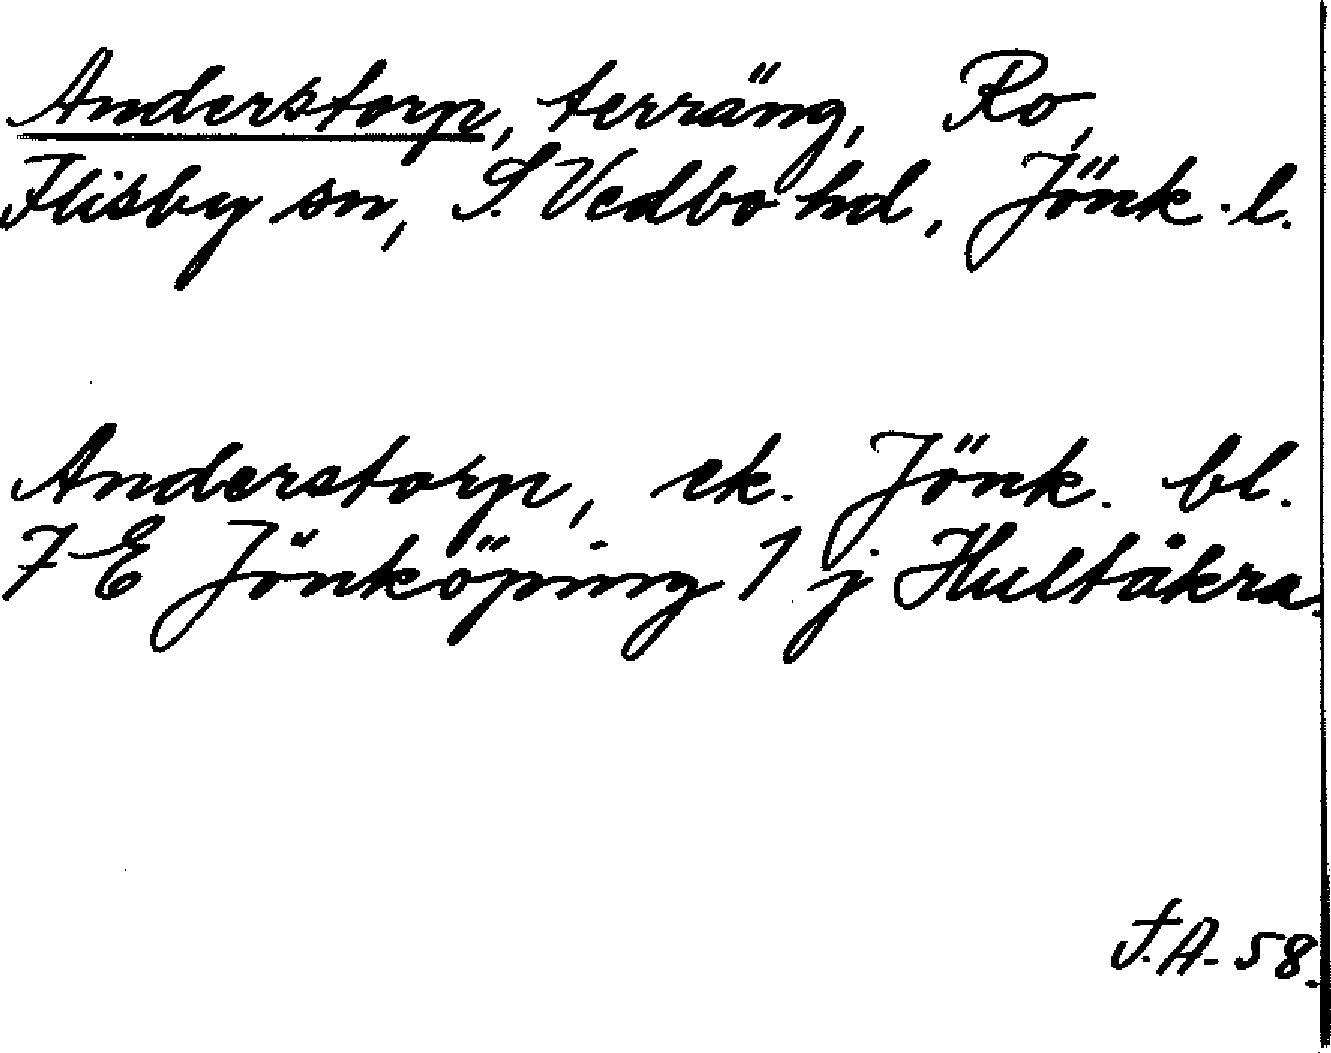 Anderstorp, terräng, Ro,
Flisby sn, S. Vedbo hd, Jönk. l.
Anderstorp, ek. Jönk. bl.
7 E Jönköping 1 j Hultåkra.
F.A. 58.